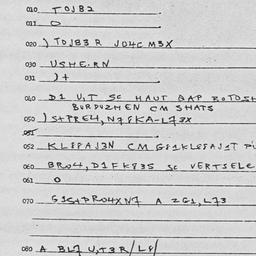 010 TOJB2
011 O
020 ) TOJB3R J04C M3X
030 USHE.RN
031 )+
040 D1 U,T SC HAUT GAP BOTOSH
BURDUZHEN CM SHATS
050 )S+PREH, N7FKA-L73X
051
052 KL8PAJ3N CM G81KL8FAJ1T
060 BR04, D1FK835 SC VERTSELE
061 O
070 G1S+PRO4XN7 A ZG1,L73
080 A BL7 U,T3R/L8/